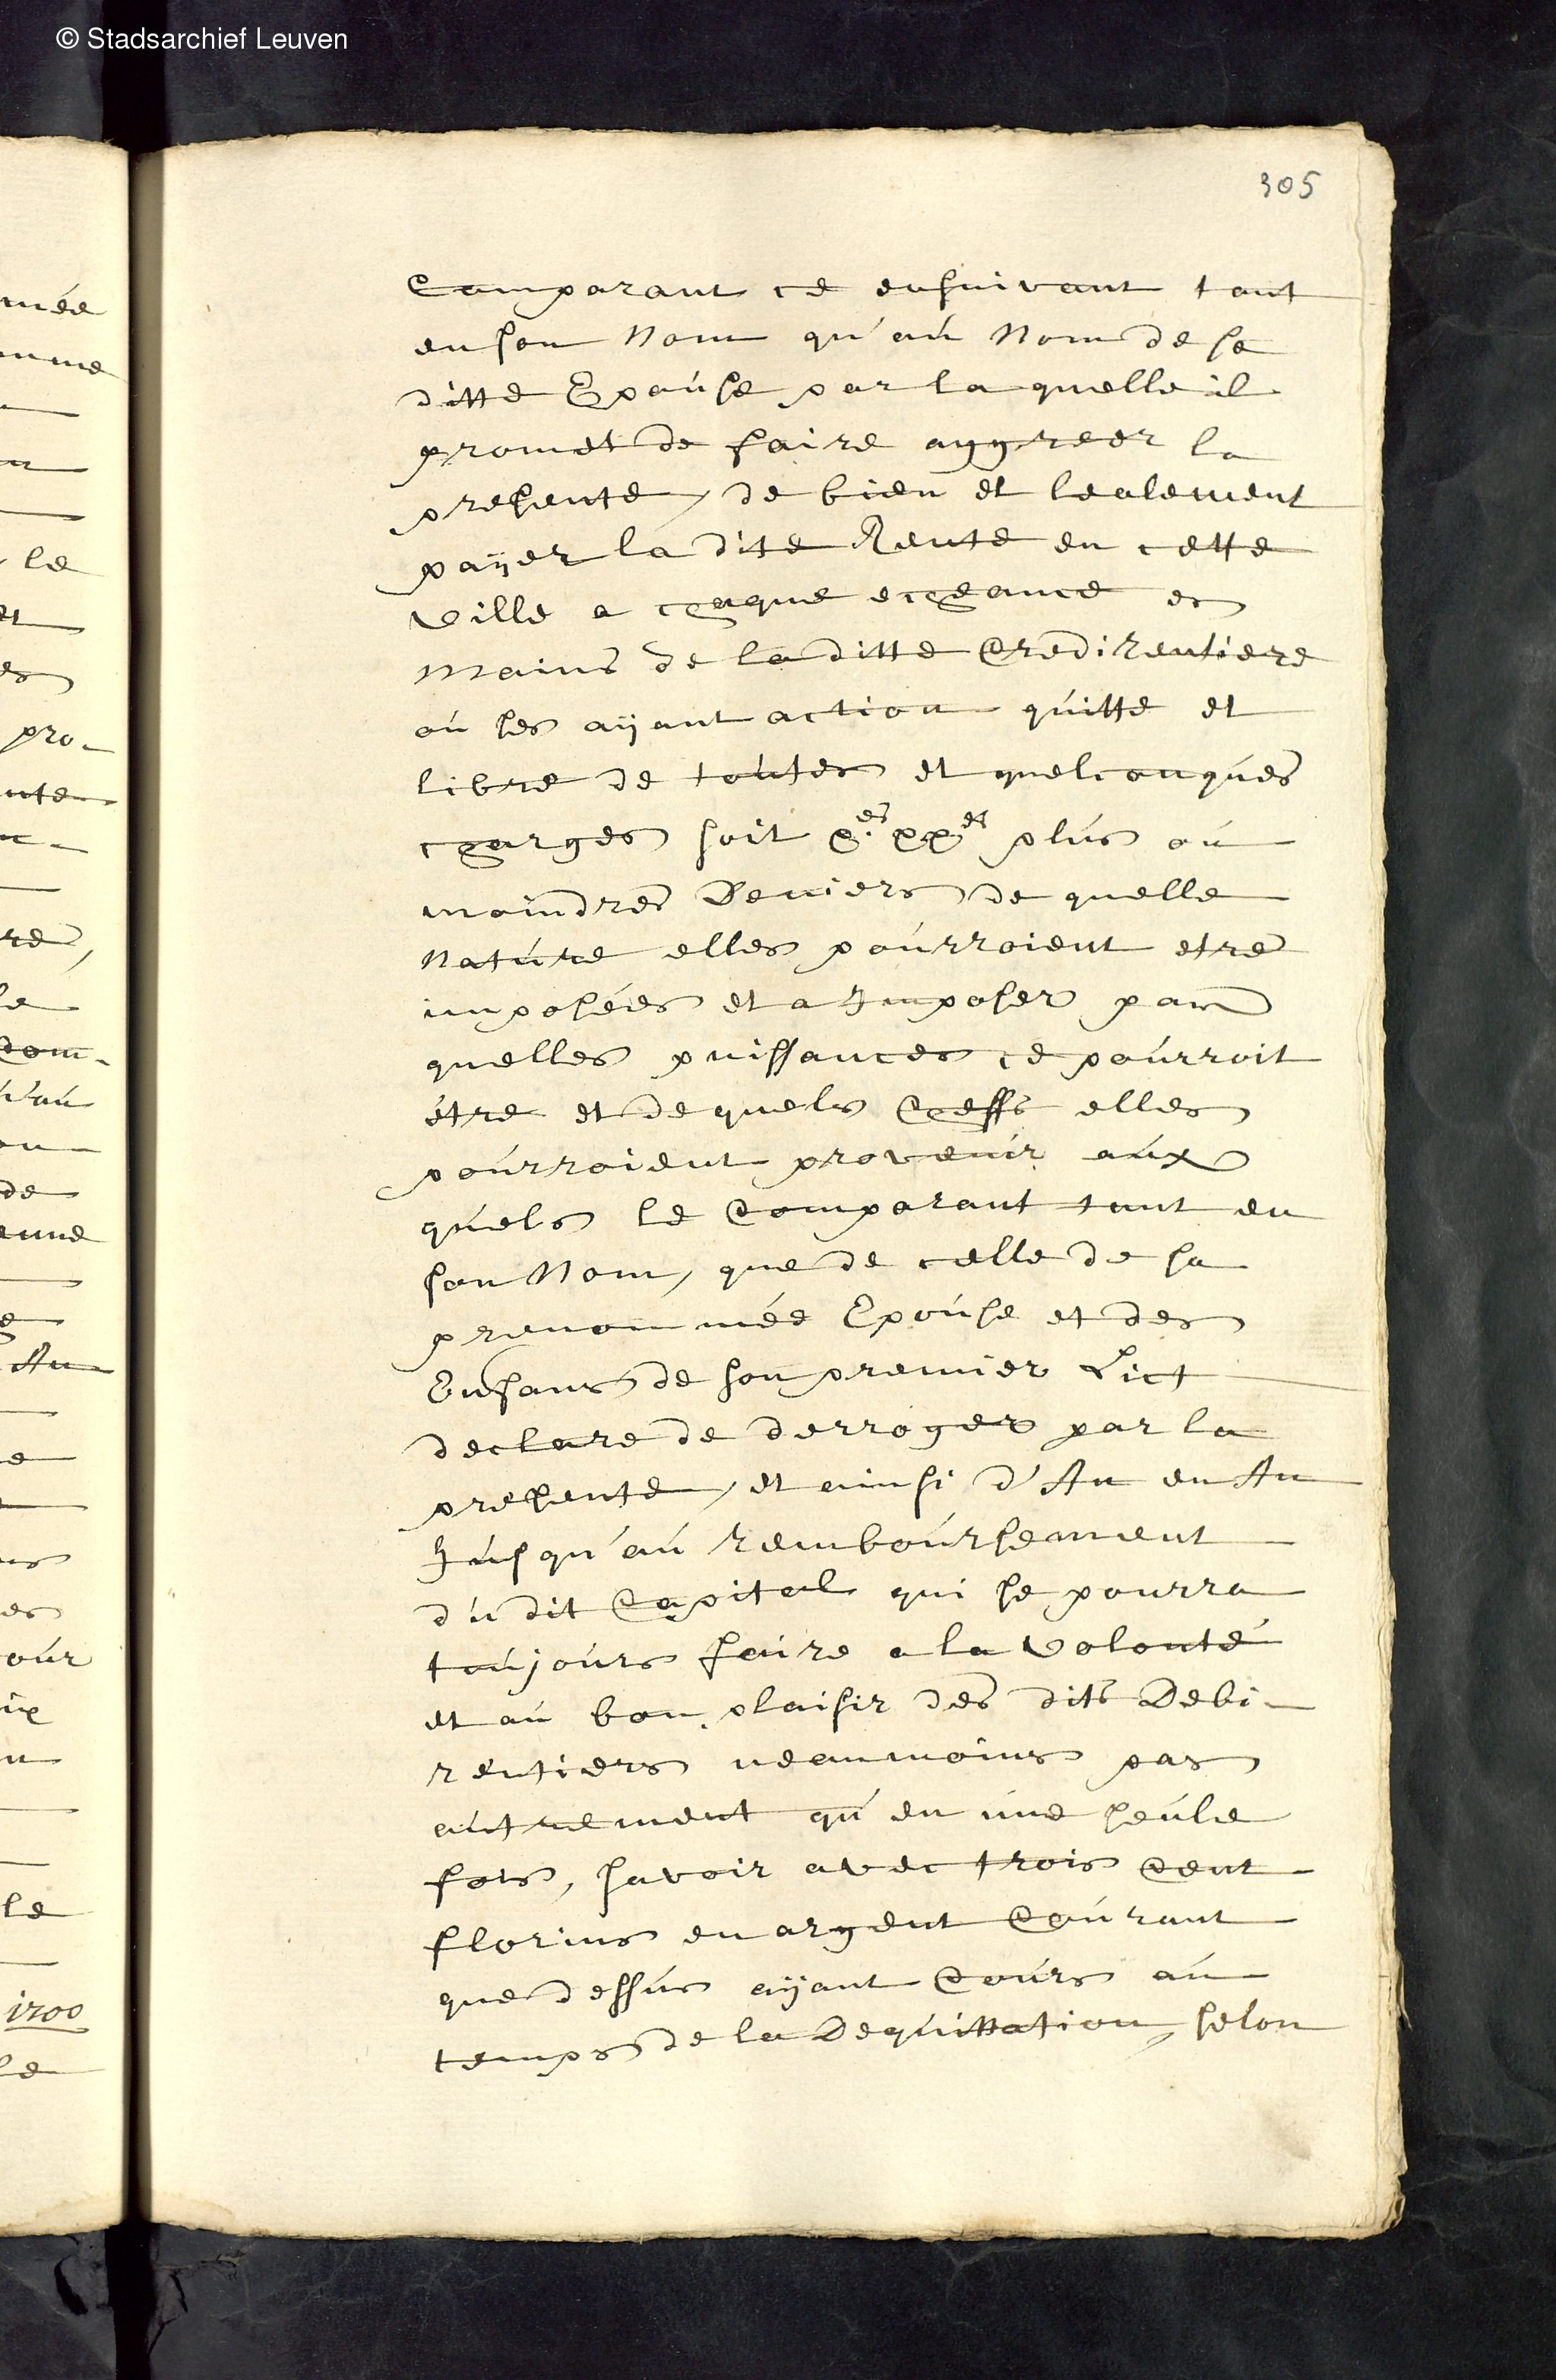 © Stadsarchief Leuven
305
Comparant ce ensuivant tant
en son Nom qu'aú Nom de sa
ditte Epoúse par la quelle il
promet de faire aggreer la
presente, de bien et lealement
paÿer la dite Rente en cette
ville a chaque echeance es
mains de la ditte Credirentiere
oú ses aÿant action quitte et
libre de toútes et quelconqúes
charges soit xes. xxes plús oú
moindres Deniers de quelle
Natúre elles poúrroient etre
imposées et a Imposer par
quelles puissances ce poúrroit
étre et de quels Cheffs elles
poúrroient provenir aúx
qúels le Comparant tant en
son Nom, que de celle de sa
prenommée Epoúse et des
Enfans de son premier Lict
declare de derroger par la
presente, et ainsi d'An en An
Júsqu'aú remboúrsement
dú dit Capital qui se pourra
toújoúrs faire a la volonté
et aú bon plaisir des dits Debi-
rentiers neanmoins pas
aútrement qu'en úne seúle
fois, savoir avec trois Cent
florins en argent Coúrant
que dessús aÿant Coúrs aú
temps de la Deqúittation, selon
mée
le
et
es
pro-
re,
Com-
de
An
es
le
1700